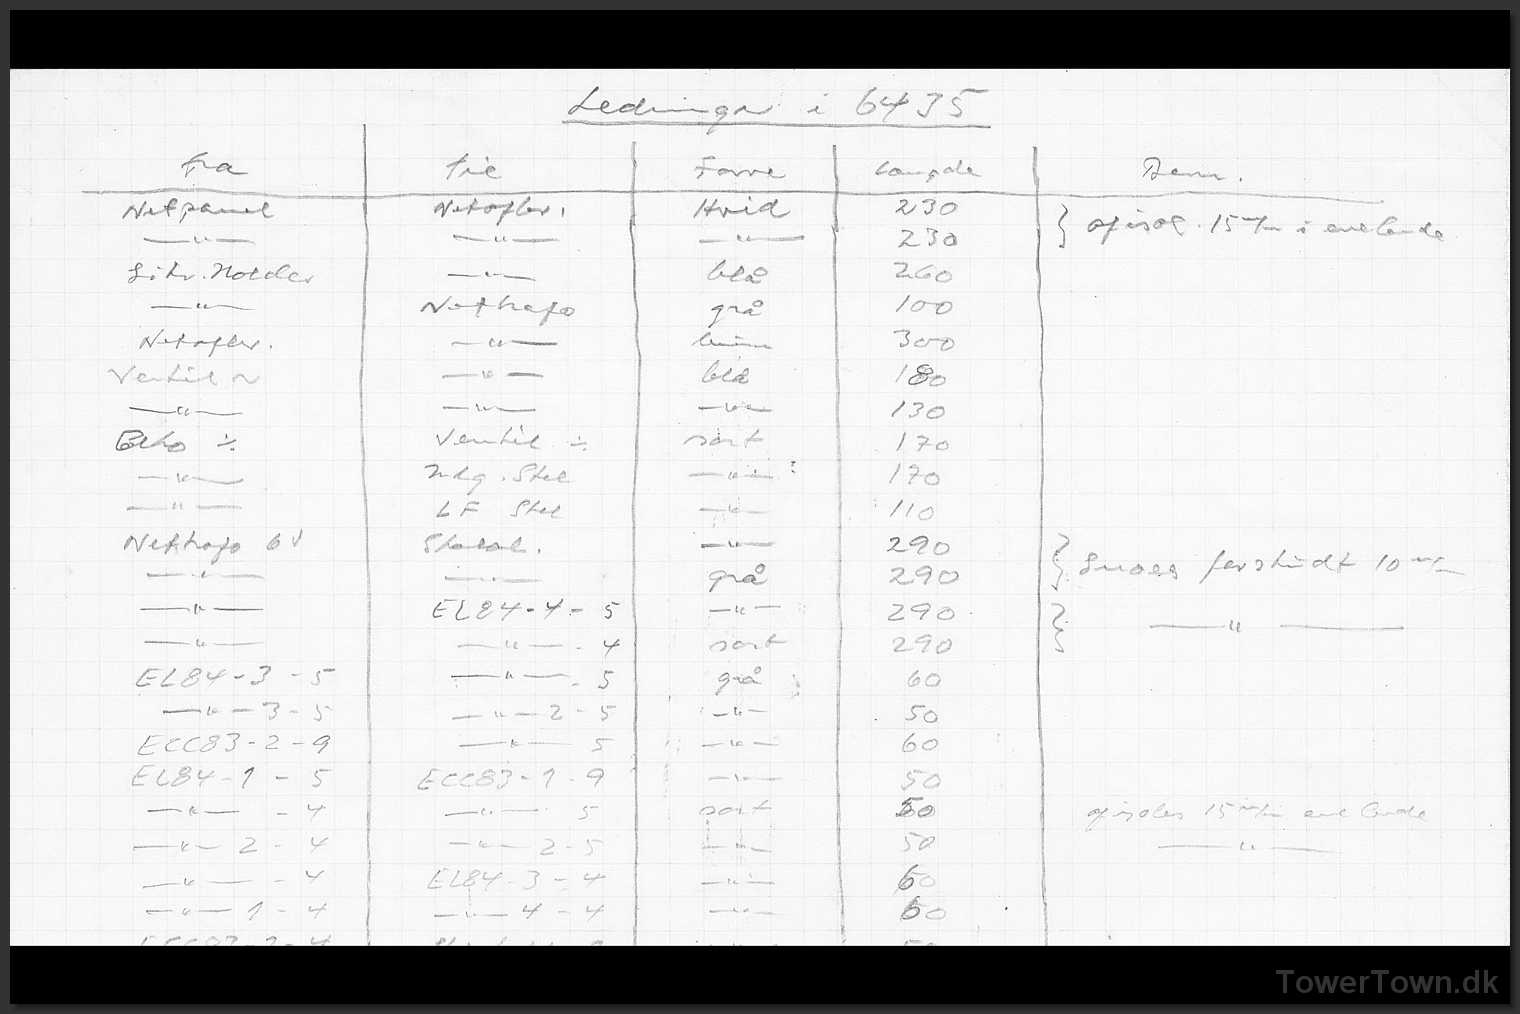 Ledninger i 6435
Fra Til Farve Længde Bem.
Netpanel Netafbr. Hvid 230 } afisol. 15 m/m i ene ende
—"— —"— —"— 230
Sikr. Holder —"— blå 260
—"— Nettrafo grå 100
Netafbr. —"— brun 300
Ventil ~ —"— blå 180
—"— —"— —"— 130
Elko ÷ Ventil ÷ sort 170
—"— Indg. Stel —"— 170
—"— LF Stel —"— 110
Nettrafo 6V Skalal. —"— 290 } Snoes forskudt 10 m/m
—"— —"— grå 290
—"— EL84-4-5 —"— 290 } —"—
—"— —"— -4 sort 290
EL84-3-5 —"— -5 grå 60
—"—3-5 —"—2-5 —"— 50
ECC83-2-9 —"— 5 —"— 60
EL84-1-5 ECC83-1-9 —"— 50
—"— -4 —"— 5 sort 50 afisoler 15 m/m ene ende
—"—2-4 —"—2-5 —"— 50 —"—
—"— -4 EL84-3-4 —"— 60
—"—1-4 —"—4-4 —"— 60
TowerTown.dk